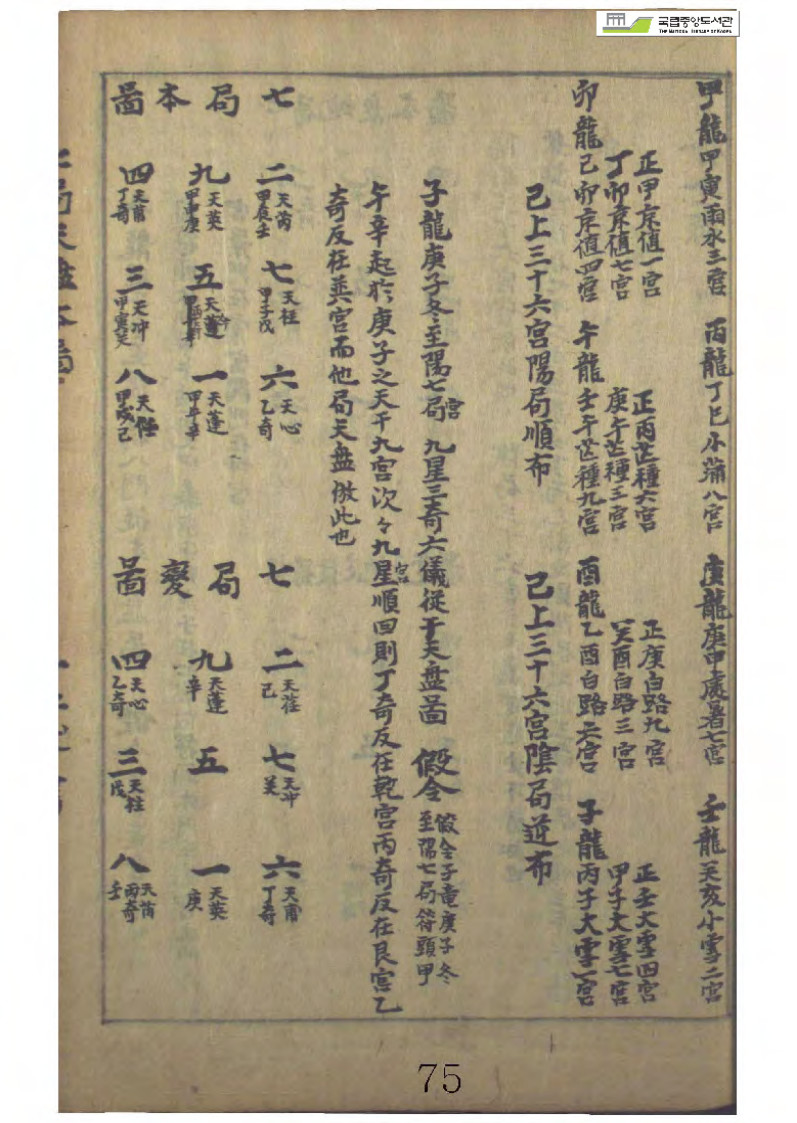 국립중앙도서관
THE NATIONAL LIBRARY OF KOREA
甲龍甲寅雨水三宮 丙龍丁巳小蒲八宮 庚龍庚申處暑七宮 壬龍癸亥小雪二宮
正甲京值一宮 正丙芒種六宮 正庚白路九宮 正壬大雪四宮
丁卯京值七宮 庚午芒種三宮 癸酉白路三宮 甲子大雪七宮
卯龍己卯京值四宮 午龍壬午芒種九宮 酉龍乙酉白路六宮 子龍丙子大雪一宮
己上三十六宮陽局順布 己上三十六宮陰局逆布
子龍庚子冬至陽七局宮 九星三奇六儀從干天盤啚 假令 假令子龍庚子冬至陽七局符頭甲
午辛起於庚子之天干九宮次々九星宮順回則丁奇反在乾宮丙奇反在艮宮乙
奇反在巽宮而他局天盤倣此也
七局本啚
二 天芮 甲辰壬 七 天柱 甲子戊 六 天心 乙奇
九 天英 甲申庚 五 一 天蓬 甲午辛
四 天甫 丁奇 三 天冲 甲寅癸 八 天任 甲戌己
七局變啚
二 天任 己 七 天冲 癸 六 天甫 丁奇
九 天蓬 辛 五 一 天英 庚
四 天心 乙奇 三 天柱 戊 八 天芮 丙奇 壬
75